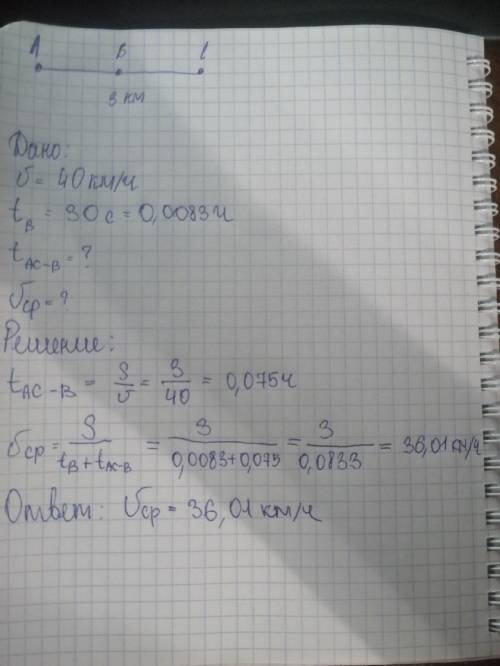 A B C
3 км
Дано:
υ = 40 км/ч
t_B = 30 c = 0,0083 ч
t_AC-B = ?
υ_ср = ?
Решение:
t_AC-B = S/υ = 3/40 = 0,075 ч
υ_ср = S/(t_B + t_AC-B) = 3/(0,0083+0,075) = 3/0,0833 = 36,01 км/ч
Ответ: υ_ср = 36,01 км/ч